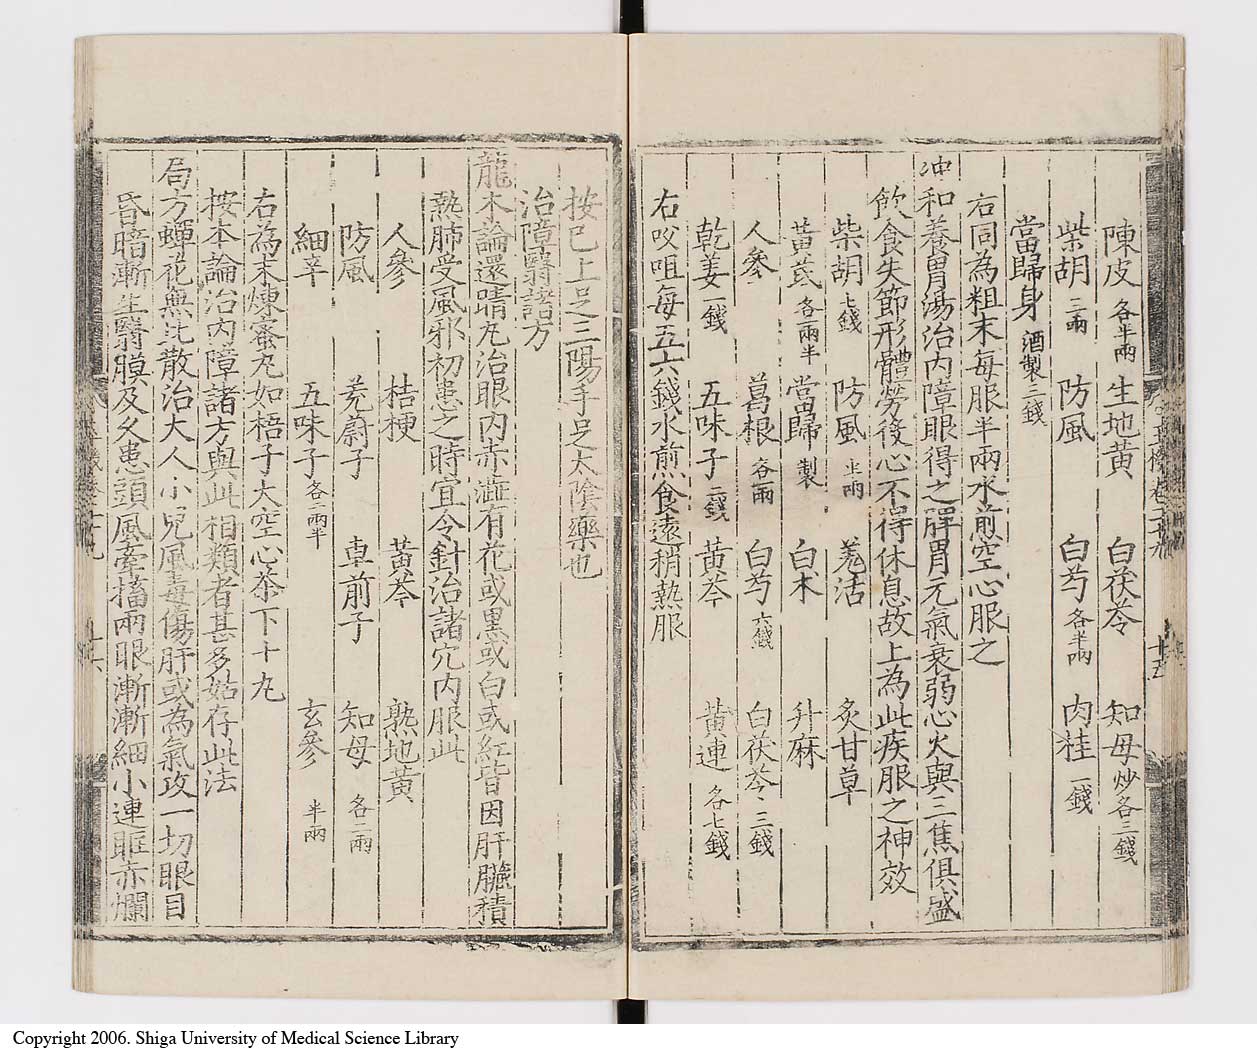 陳皮各半兩 生地黃 白茯苓 知母炒各三錢
柴胡三兩 防風 白芍各半兩 肉桂一錢
當歸身酒製二錢
右同為粗末每服半兩水煎空心服之
冲和養胃湯治内障眼得之脾胃元氣衰弱心火與三焦俱盛
飲食失節形體勞役心不得休息故上為此疾服之神效
柴胡七錢 防風半兩 羗活 炙甘草
黃芪各兩半 當歸製 白朮 升麻
人參 葛根各兩 白芍六錢 白茯苓三錢
乾姜一錢 五味子二錢 黃芩 黃連各七錢
右㕮咀每五六錢水煎食遠稍熱服
十五
按已上足三陽手足太陰藥也
治障翳諸方
龍木論還睛丸治眼内赤澁有花或黑或白或紅皆因肝臟積
熱肺受風邪初患之時宜令針治諸穴内服此
人參 桔梗 黃芩 熟地黃
防風 茺蔚子 車前子 知母各二兩
細辛 五味子各二兩半 玄參半兩
右為末煉蜜丸如梧子大空心茶下十丸
按本論治内障諸方與此相類者甚多姑存此法
局方蟬花無比散治大人小兒風毒傷肝或為氣攻一切眼目
昏暗漸生翳膜及久患頭風牽搐兩眼漸漸細小連眶赤爛
十六
Copyright 2006. Shiga University of Medical Science Library